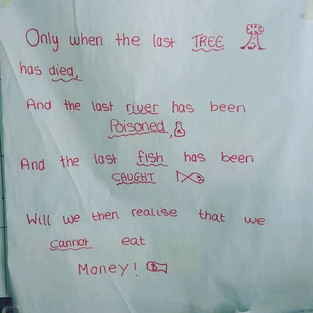 Only when the last TREE
has died,
And the last river has been
Poisoned,
And the last fish has been
CAUGHT
Will we then realise that we
cannot eat
Money!